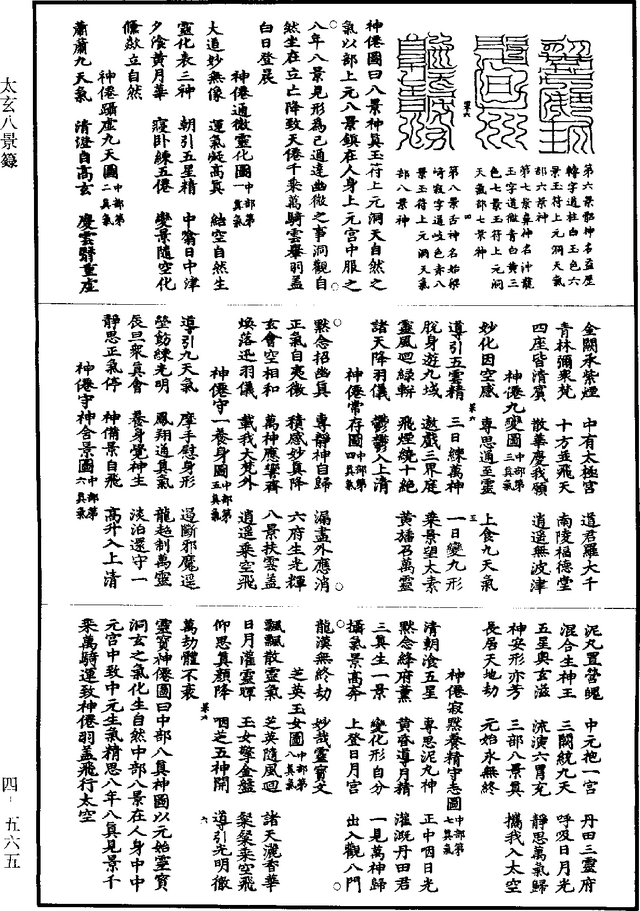 第六景髓神名益歷
輔字道柱白玉色六
景玉符上元洞天氣
部六景神
第七景鼻神名沖龍
玉字道微青白黃三
色七景玉符上元洞
天氣部七景神
第八景舌神名始梁
峙字道岐色赤八
景玉符上元洞天氣
部八景神
神僊圖曰八景神真玉符上元洞天自然之
氣以部上元八景鎮在人身上元宮中服之
八年八景見形為己通達幽微之事洞觀自
然坐在立亡降致天僊千乘萬騎雲轝羽蓋
白日登晨
神僊通微靈化圖中部第一真氣
大道妙無像 運氣凝高真 結空自然生
靈化表三神 朝引五星精 中飡日中津
夕飡黃月華 寢卧練五僊 變景隨空化
儵歘立自然
神僊躡虛九天圖中部第二真氣
蕭蕭九天氣 清澄自高玄 慶雲翳重座
金闕承紫煙 中有太極宮 道君羅大千
青林彌衆梵 十方並飛天 南陵福德堂
四座皆清賓 散華慶我願 逍遥無波津
神僊九變圖中部第三真氣
妙化因空感 專思通至靈 上食九天氣
導引五雲精 三日練萬神 一日變九形
脫身遊九域 遨戲三界庭 乘景望太素
靈風迴綠軿 飛煙繞十絶 黃旛召萬靈
諸天降羽儀 鬱鬱入上清
神僊常存圖中部第四真氣
默念招幽真 專靜神自歸 漏盡外應消
正氣自夷微 積感妙真降 六府生光輝
玄會空相和 萬神應響齊 八景扶雲蓋
煥落迅羽儀 載我大梵外 逍遥乘空飛
神僊守一養身圖中部第五真氣
導引九天氣 摩手慰身形 遏斷邪魔逕
瑩飭練光明 鳳翔通真氣 龍超制萬靈
辰旦衆真會 養身覺神生 淡泊還守一
靜思正氣停 神備景自飛 高升入上清
神僊守神含景圖中部第六真氣
泥丸置營魄 中元抱一宮 丹田三靈府
混合生神王 三關統九天 呼吸日月光
五星奥玄滋 流演六胃充 靜思萬氣歸
神安形亦芳 三部八景真 攜我入太空
長居天地劫 元始永無終
神僊寂默養精守志圖中部第七真氣
清朝飡五星 專思泥丸神 正中咽日光
默念絳府薫 黃昏導月精 灌溉丹田君
三真生一景 變化形自分 一見萬神歸
攝氣景高奔 上登日月宮 出入觀八門
龍漢無終劫 妙哉靈寶文
芝英玉女圖中部第八真氣
飄飄散靈氣 芝英隨風迴 諸天灑香華
日月灌靈暉 玉女擎金盤 粲粲乘空飛
仰思真顏降 咽芝五神開 導引光明徹
萬劫體不衰
靈寶神僊圖曰中部八真神圖以元始靈寶
洞玄之氣化生自然中部八景在人身中中
元宮中致中元生氣精思八年八真見景千
乘萬騎運致神僊羽蓋飛行太空
太玄八景籙
四-五六五